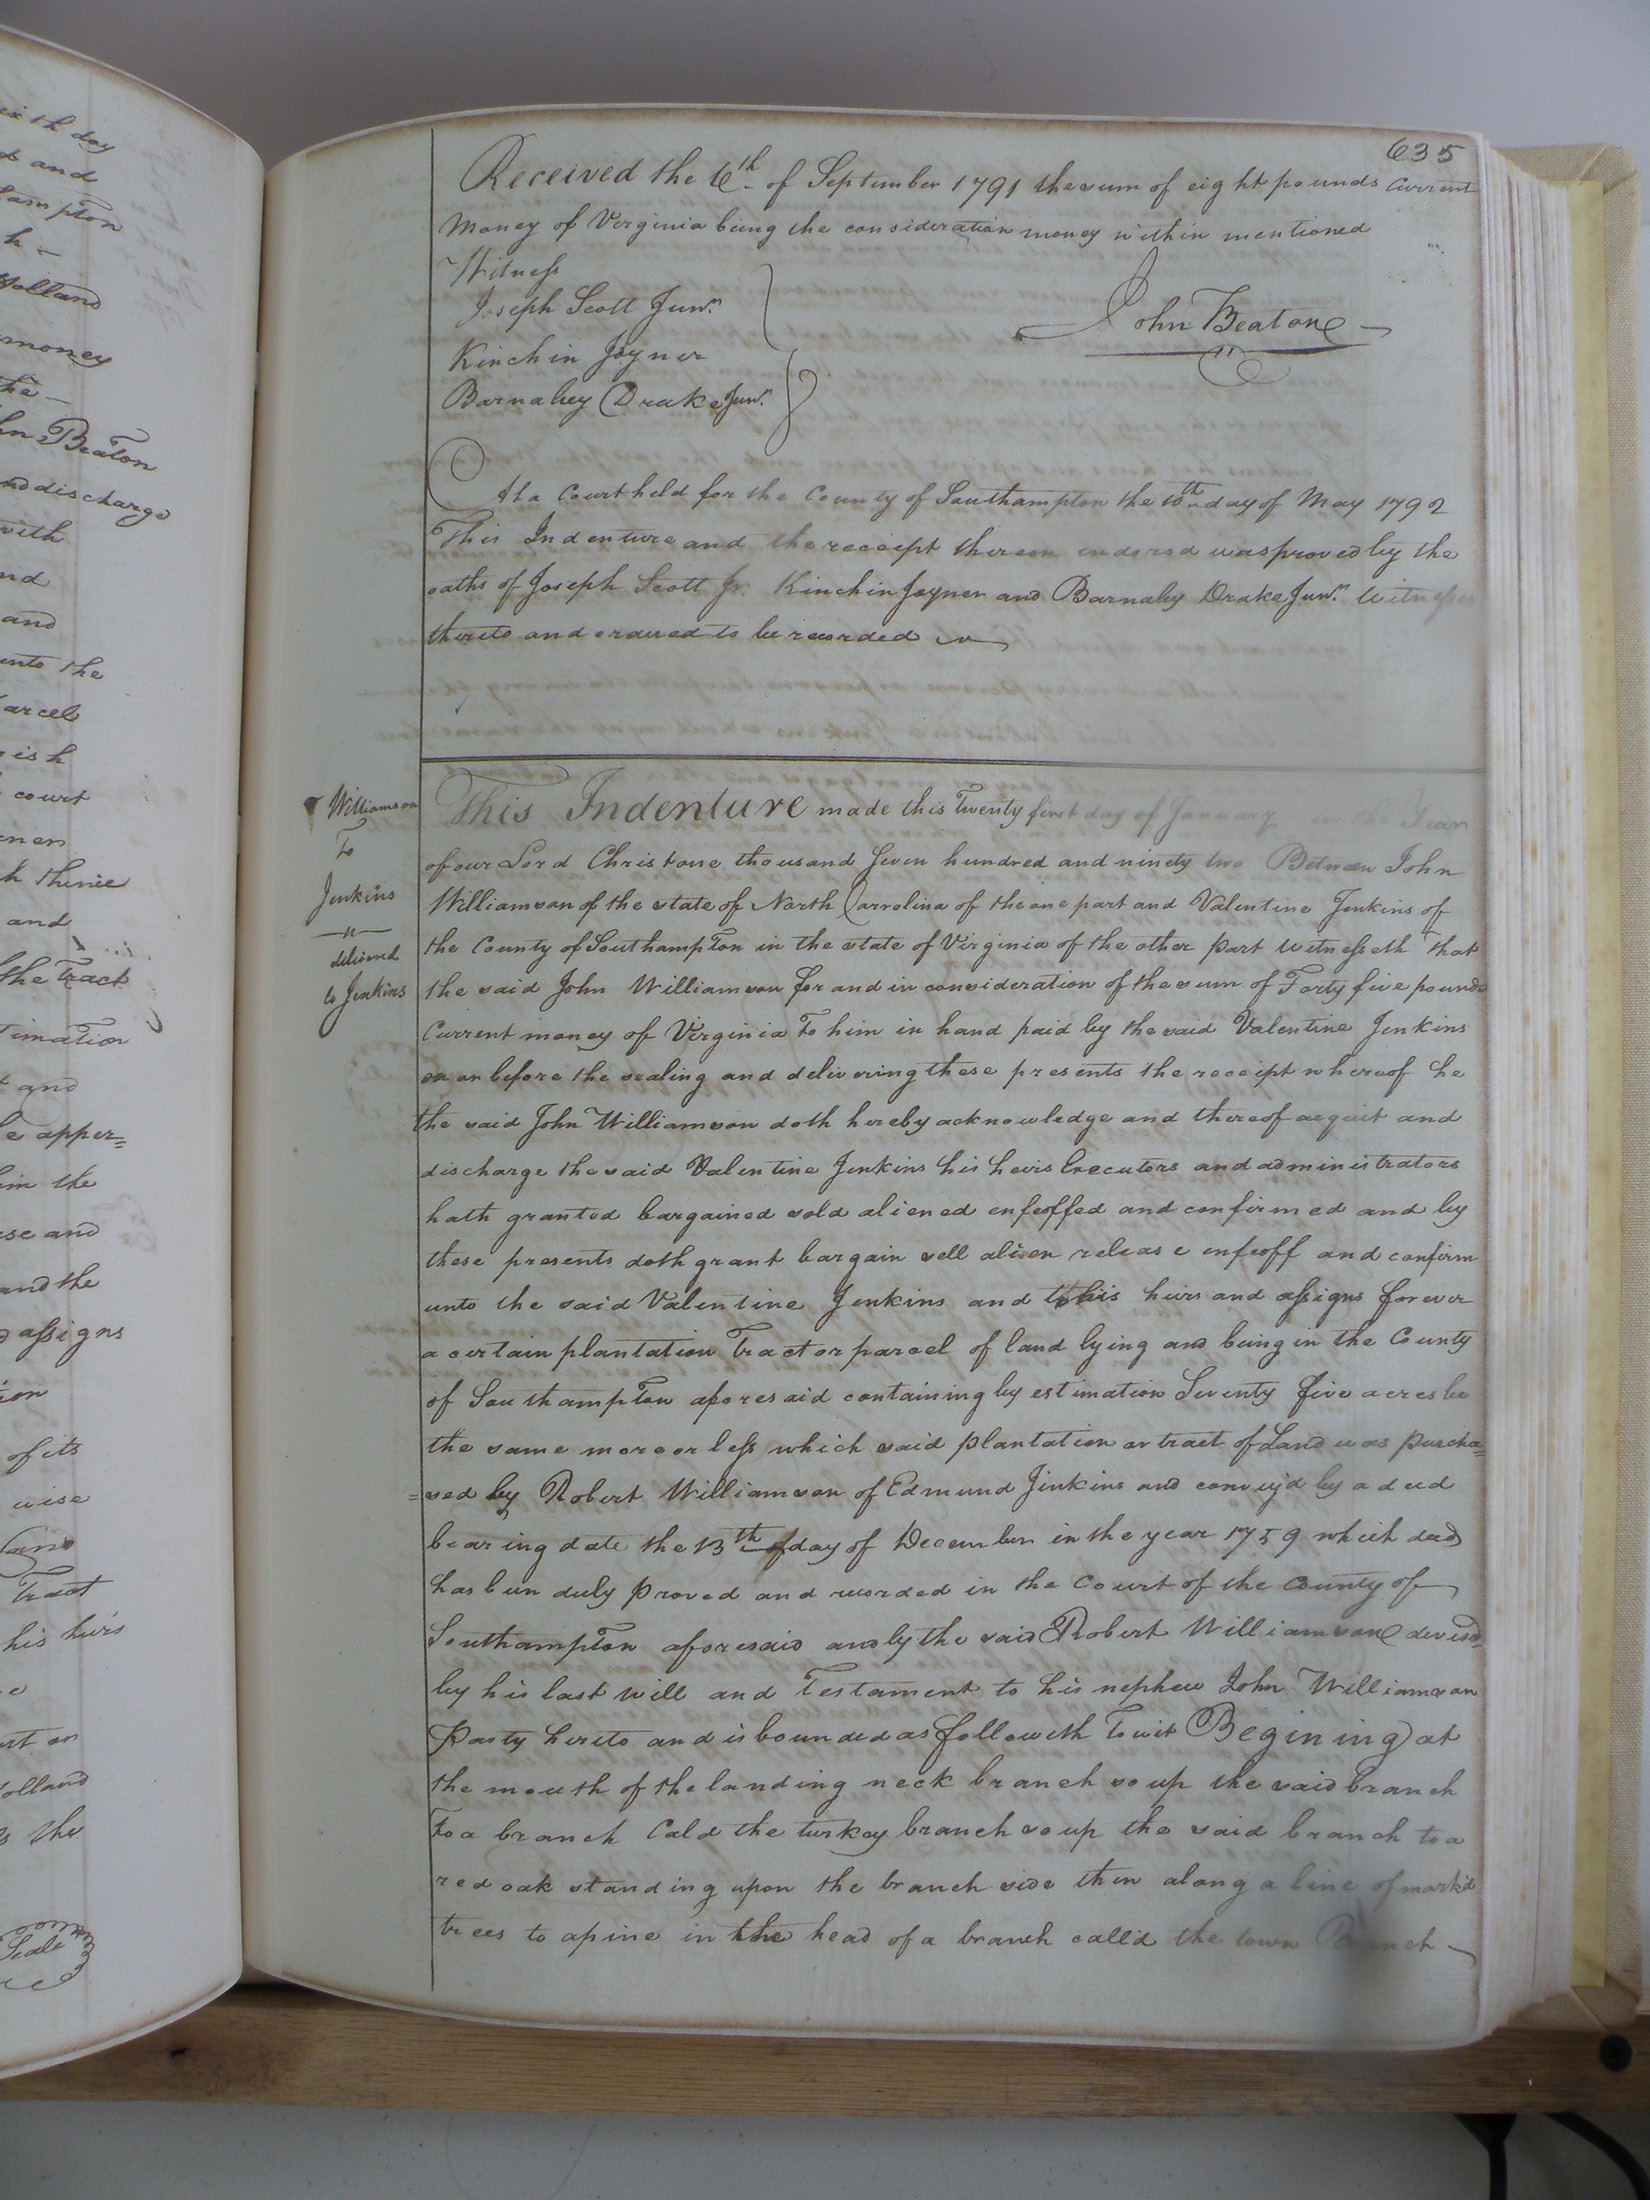 ix th day
and
ampton
h
Holland
money
the
hn Beaton
nd discharge
with
nd
and
unto the
arcel
rish
court
ner
h thence
and
the Tract
timation
t and
he apper=
him the
se and
and the
d assigns
ion
of its
wise
Land
Tract
his heirs
rt or
Holland
the
Seale
635
Received the 6th. of September 1791 the sum of eight pounds Current
Money of Virginia being the consideration money within mentioned
Witness
Joseph Scott Junr.
John Beaton
Kinchin Joyner
Barnabey Drake Junr.
At a Court held for the County of Southampton the 10th day of May 1792
This Indenture and the receipt thereon indorsd was proved by the
oaths of Joseph Scott Jr. Kinchin Joyner and Barnaby Drake Junr. Witnesses
thereto and ordered to be recorded
Williamson
To
Jenkins
delivered
to Jenkins
This Indenture made this Twenty first day of January in the Year
of our Lord Christ one thousand Seven hundred and ninety two Between John
Williamson of the state of North Carrolina of the one part and Valentine Jenkins of
the County of Southampton in the state of Virginia of the other part Witnesseth That
the said John Williamson for and in consideration of the sum of Forty five pounds
Current money of Virginia To him in hand paid by the said Valentine Jenkins
on or before the sealing and delivering these presents the receipt whereof he
the said John Williamson doth hereby acknowledge and thereof acquit and
discharge the said Valentine Jenkins his heirs Executors and administrators
hath granted bargained sold aliened enfeoffed and confirmed and by
these presents doth grant bargain sell alien release enfeoff and confirm
unto the said Valentine Jenkins and to his heirs and assigns forever
a certain plantation Tract or parcel of land lying and being in the County
of Southampton aforesaid containing by estimation Seventy five acres be
the same more or less which said plantation or tract of Land was purcha=
=sed by Robert Williamson of Edmund Jinkins and convey'd by a deed
bearing date the 13th of day of December in the year 1759 which deed
has been duly proved and recorded in the Court of the County of
Southampton aforesaid and by the said Robert Williamson devisd
by his last will and Testament to his nephew John Williamson
Party hereto and is bounded as followeth To wit Begining at
the mouth of the landing neck branch so up the said branch
To a branch Cald the turkey branch so up the said branch to a
red oak standing upon the branch side then along a line of mark'd
trees to a pine in the head of a branch call'd the town Branch